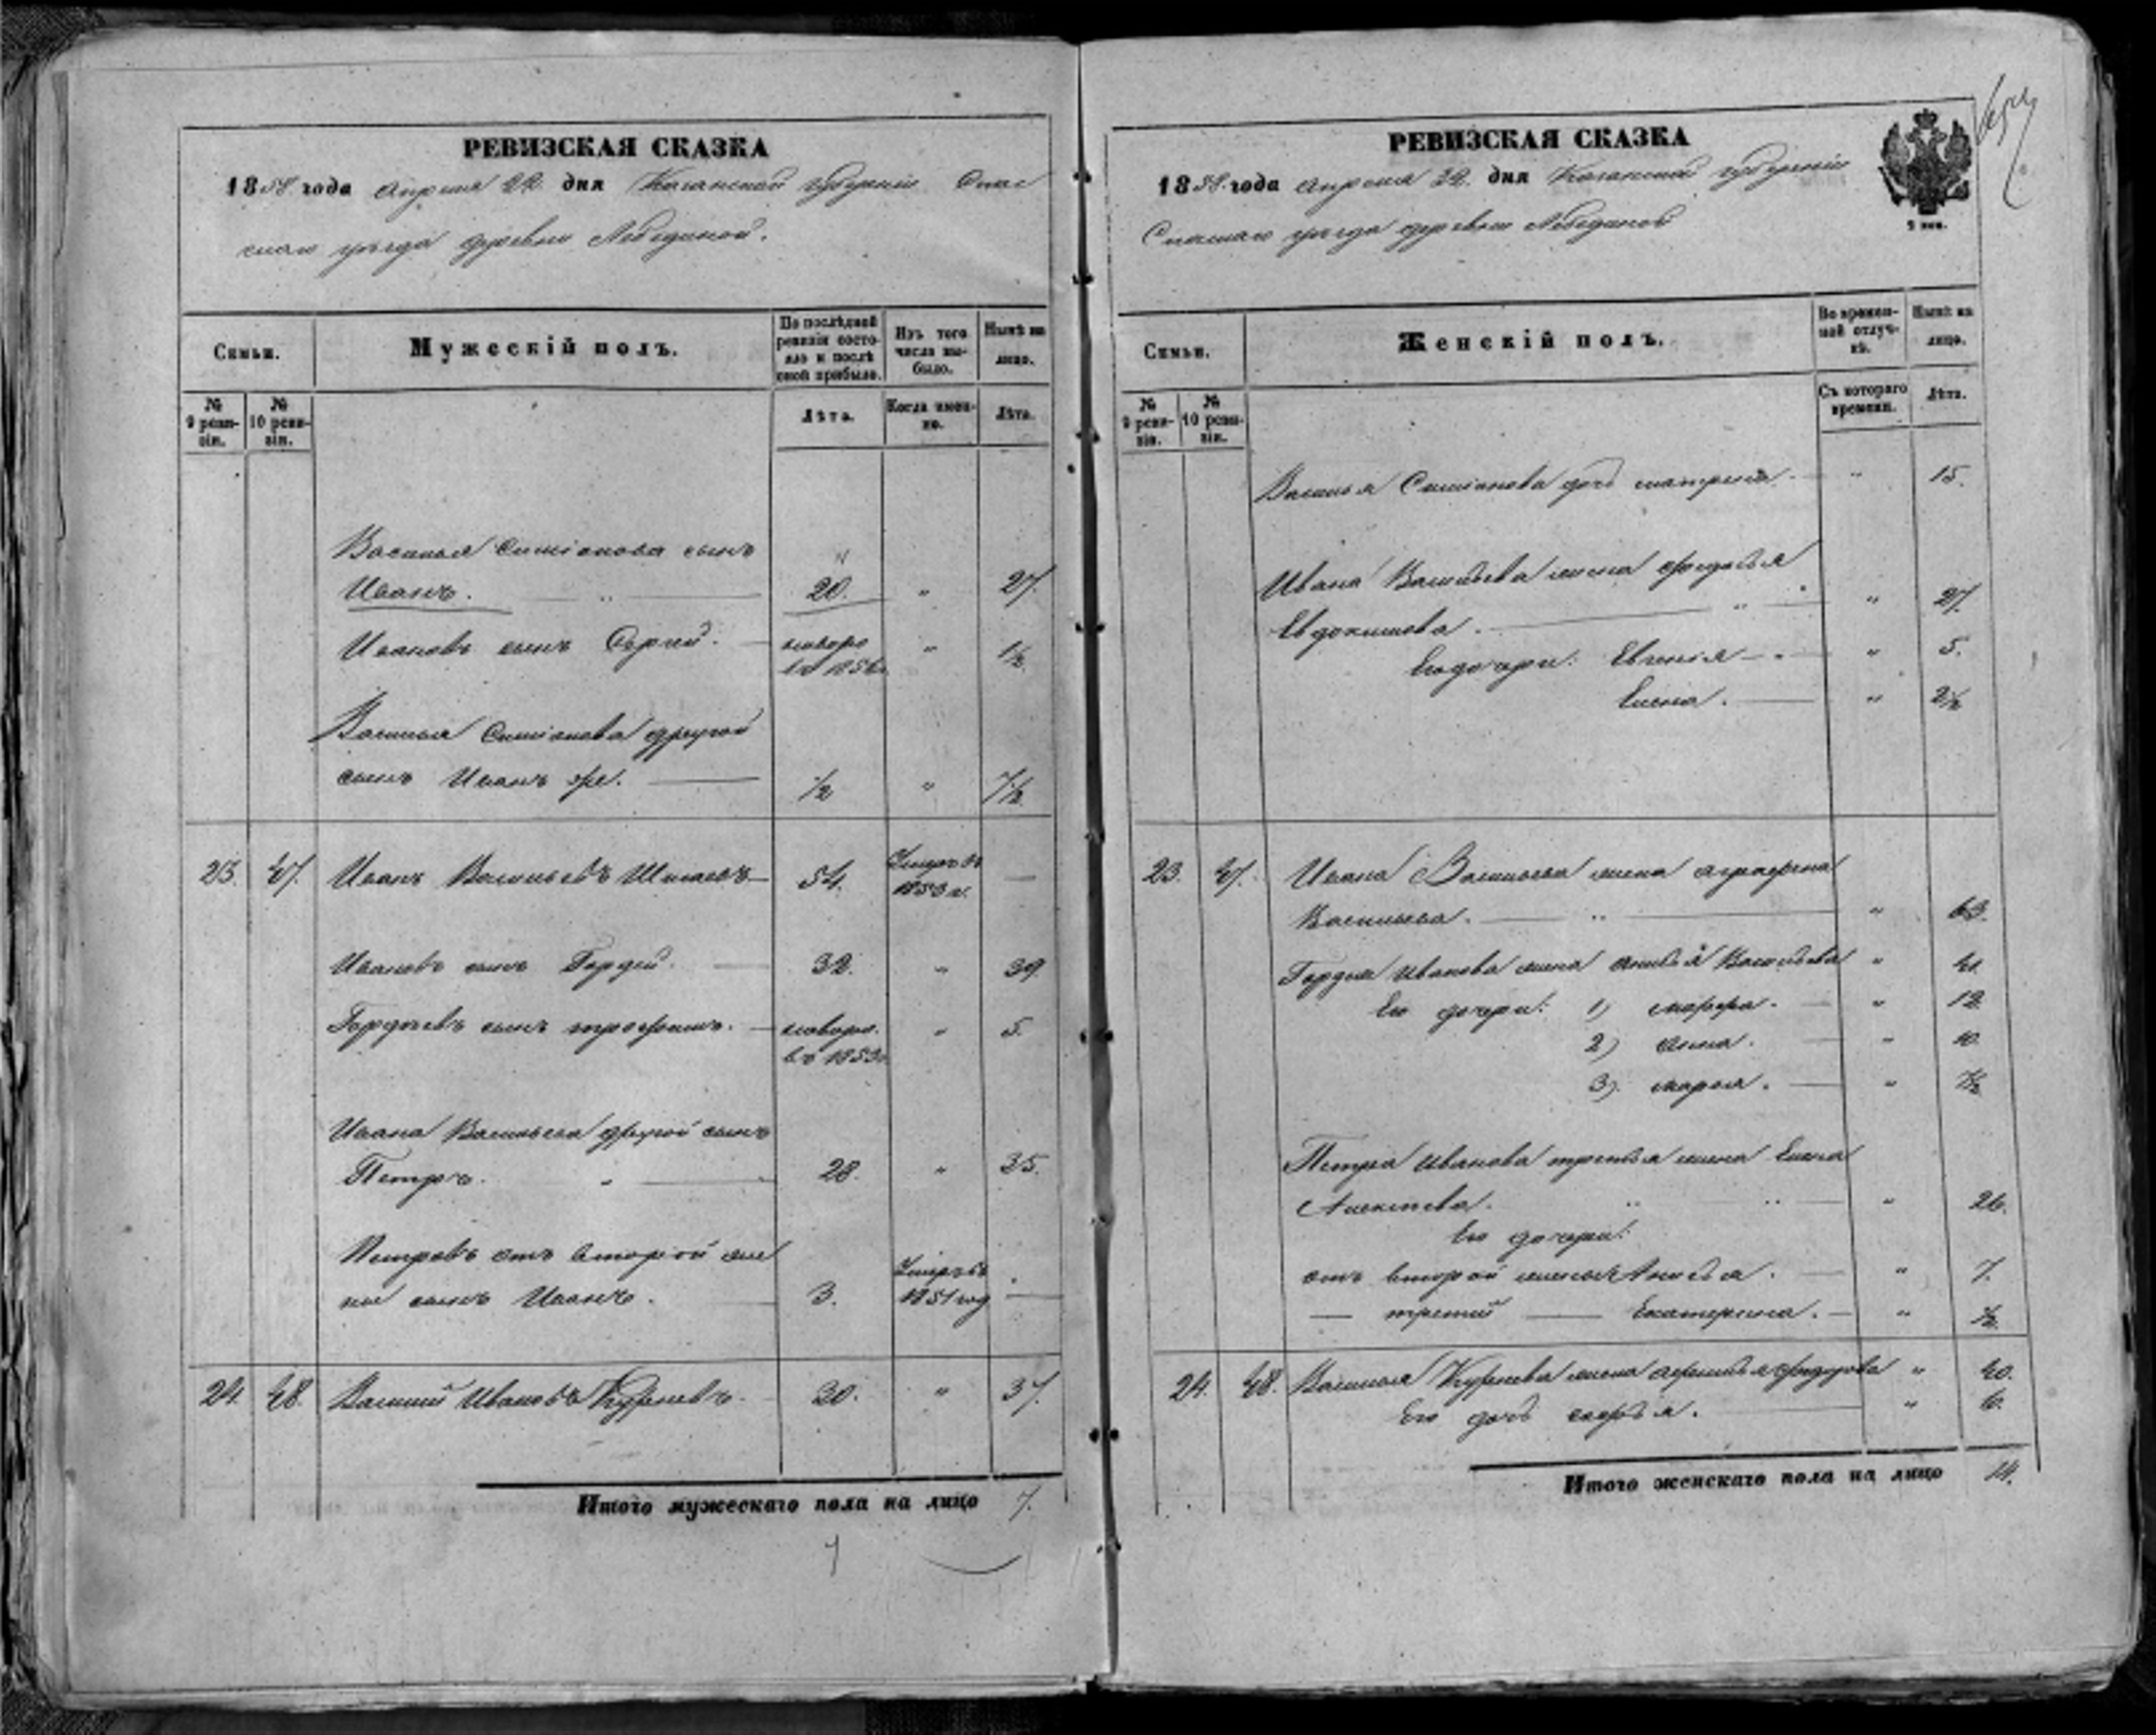 РЕВИЗСКАЯ СКАЗКА
1858 года Апреля 22 дня Казанской губернiи Спас
скаго уѣзда деревни Лебединой.
Семьи.
Мужескiй полъ.
По послѣдней ревизiи состояло и послѣ оной прибыло.
Изъ того числа выбыло.
Нынѣ на лицо.
№ 9 ревизiи.
№ 10 ревизiи.
Лѣта.
Когда именно.
Лѣта.
Василья Симiонова сынъ
Иванъ. 20. " 27.
Ивановъ сынъ Сергей. новоро " 1½
въ 1856
Василья Симiонова другой
сынъ Иванъ же. ½ " 7½
23. 47. Иванъ Васильевъ 54. Умеръ въ —
1853 г.
Ивановъ сынъ Гордей. 32. " 39
Гордѣевъ сынъ трофимъ. новоро. " 5.
въ 1853
Ивана Васильева другой сынъ
Петръ. 28. " 35.
Петровъ отъ второй же
ны сынъ Иванъ. 3. Умеръ въ —
1851 год
24. 48. Василий Ивановъ 30. " 37.
Итого мужескаго пола на лицо 7.
РЕВИЗСКАЯ СКАЗКА
1858 года Апреля 22 дня Казанской губернiи
Спаскаго уѣзда деревни Лебединой
2 коп.
Семьи.
Женскiй полъ.
Во временной отлучкѣ.
Нынѣ на лицо.
№ 9 ревизiи.
№ 10 ревизiи.
Съ котораго времени.
Лѣта.
Василья Симiонова дочь матрена. " 15.
Ивана Васильева жена федосья
Евдокимова. " 27.
Его дочери: Евгенiя " 5.
Елена. " 2½
23. 47. Ивана Васильева жена аграфена
Васильева. " 63.
Гордея Иванова жена анисья Васильева " 41.
Его дочери: 1) марфа. " 12
2) анна. " 10.
3) марья. " 7½
Петра Иванова третья жена Елена
Алексѣева. " 26.
Его дочери:
отъ второй жены Анисья. " 7.
— третий — Екатерина. " ½
24. 48. Василья жена " 40.
Его дочь " 6.
Итого женскаго пола на лицо 14.